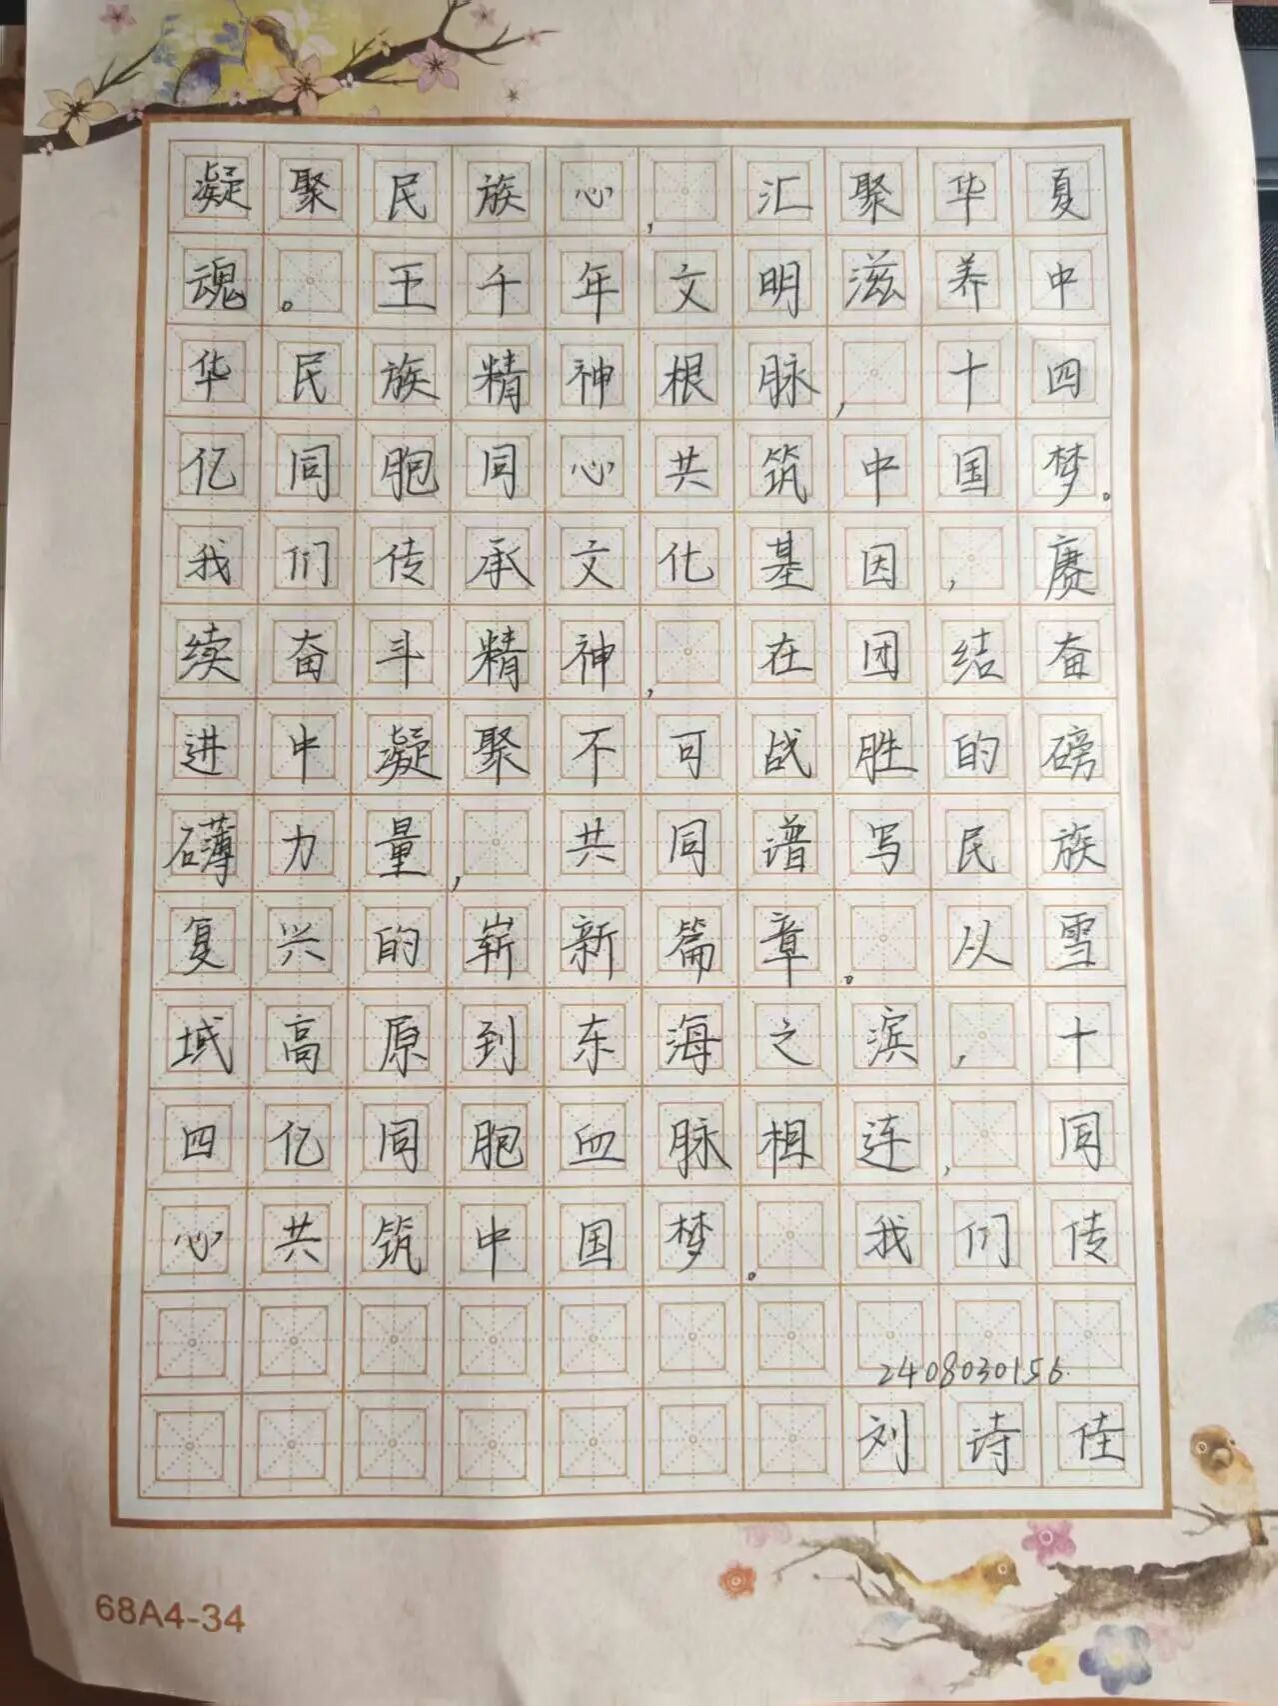 凝聚民族心，汇聚华夏
魂。王千年文明滋养中
华民族精神根脉，十四
亿同胞同心共筑中国梦。
我们传承文化基因，赓
续奋斗精神，在团结奋
进中凝聚不可战胜的磅
礴力量，共同谱写民族
复兴的崭新篇章。从雪
域高原到东海之滨，十
四亿同胞血脉相连，同
心共筑中国梦。我们传
2408030156.
刘诗佳
68A4-34